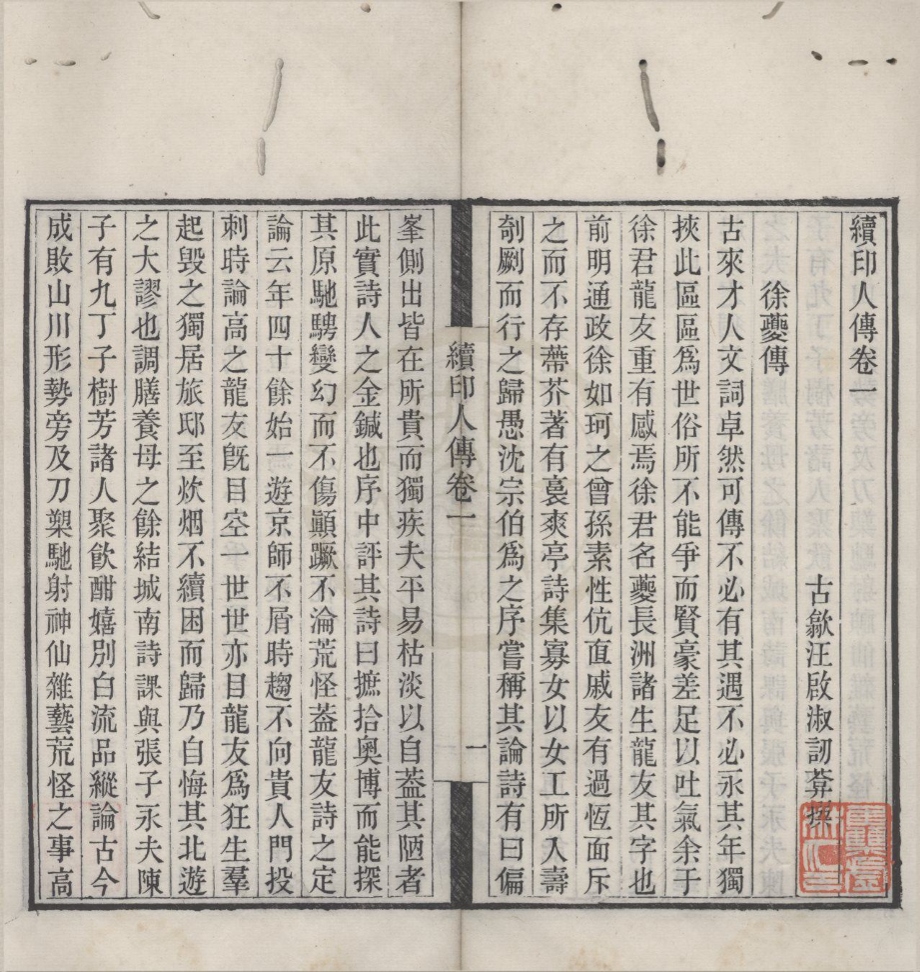 續印人傳卷一
古歙汪啟淑訒葊撰
徐夔傳
古來才人文詞卓然可傳不必有其遇不必永其年獨
挾此區區爲世俗所不能爭而賢豪差足以吐氣余于
徐君龍友重有感焉徐君名夔長洲諸生龍友其字也
前明通政徐如珂之曾孫素性伉直戚友有過恆面斥
之而不存蔕芥著有裛爽亭詩集寡女以女工所入壽
剞劂而行之歸愚沈宗伯爲之序嘗稱其論詩有曰偏
續印人傳卷一
一
峯側出皆在所貴而獨疾夫平易枯淡以自葢其陋者
此實詩人之金鍼也序中評其詩曰摭拾奧博而能探
其原馳騁變幻而不傷顚蹶不淪荒怪葢龍友詩之定
論云年四十餘始一遊京師不屑時趨不向貴人門投
刺時論高之龍友旣目空一世世亦目龍友爲狂生羣
起毀之獨居旅邸至炊烟不續困而歸乃自悔其北遊
之大謬也調膳養母之餘結城南詩課與張子永夫陳
子有九丁子樹芳諸人聚飮酣嬉別白流品縱論古今
成敗山川形勢旁及刀槊馳射神仙雜藝荒怪之事高